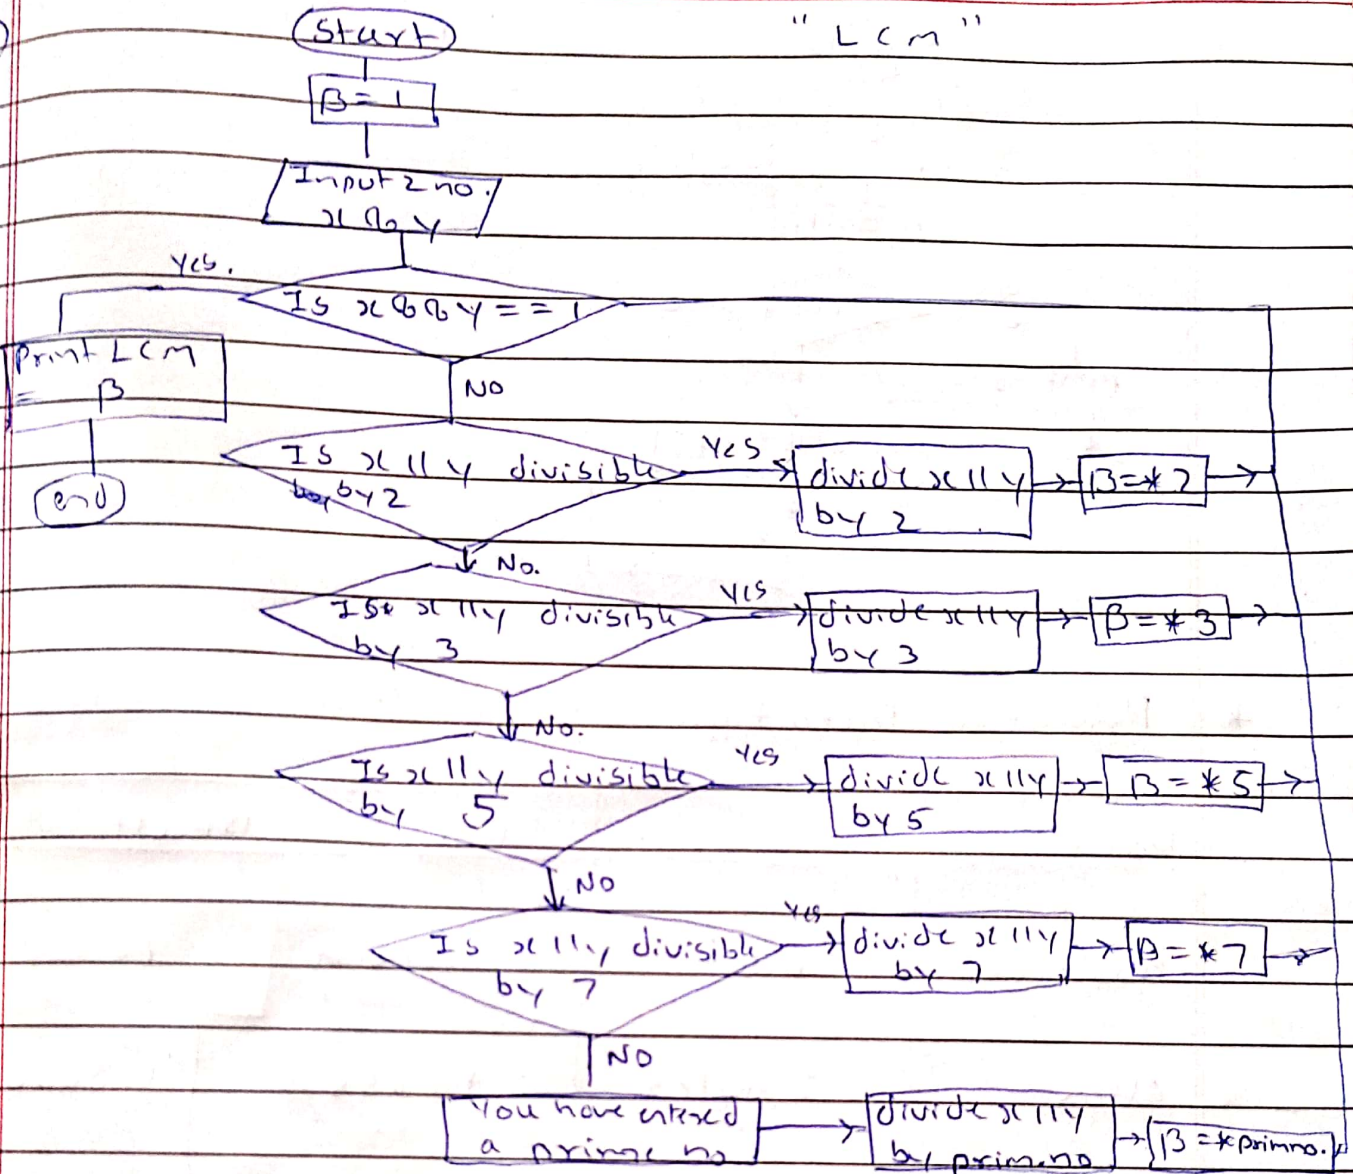 Start
"LCM"
β = 1
Input 2 no.
x & y
Yes.
Is x && y == 1
Print LCM
= β
NO
end
Is x || y divisible
by 2
Yes
divide x || y
by 2
β=*2
No.
Is x || y divisible
by 3
Yes
divide x || y
by 3
β=*3
No.
Is x || y divisible
by 5
Yes
divide x || y
by 5
β=*5
NO
Is x || y divisible
by 7
Yes
divide x || y
by 7
β=*7
NO
You have entered
a prime no
divide x || y
by prim.no
β=*primno.